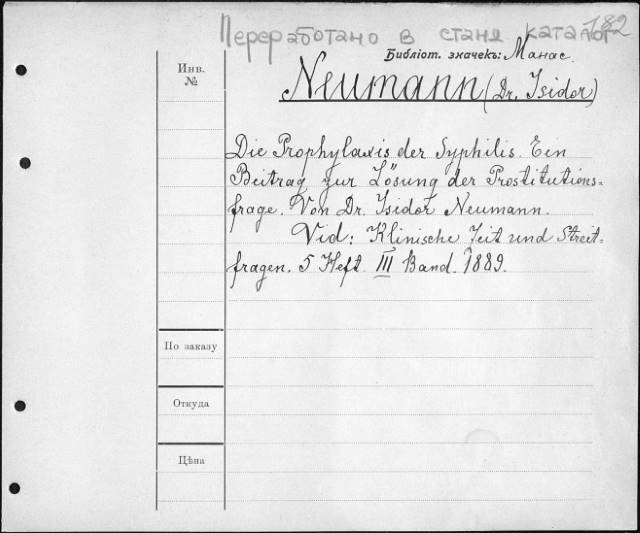 Переработано в станя каталог
182
Библіот. значекъ: Манас.
Инв.
№
Neumann (Dr. Isidor)
Die Prophylaxis der Syphilis. Ein
Beitrag zur Lösung der Prostitutions=
frage. Von Dr. Isidor Neumann.
Vid: Klinische Zeit und Streit=
fragen. 5 Heft. III Band. 1889.
По заказу
Откуда
Цѣна